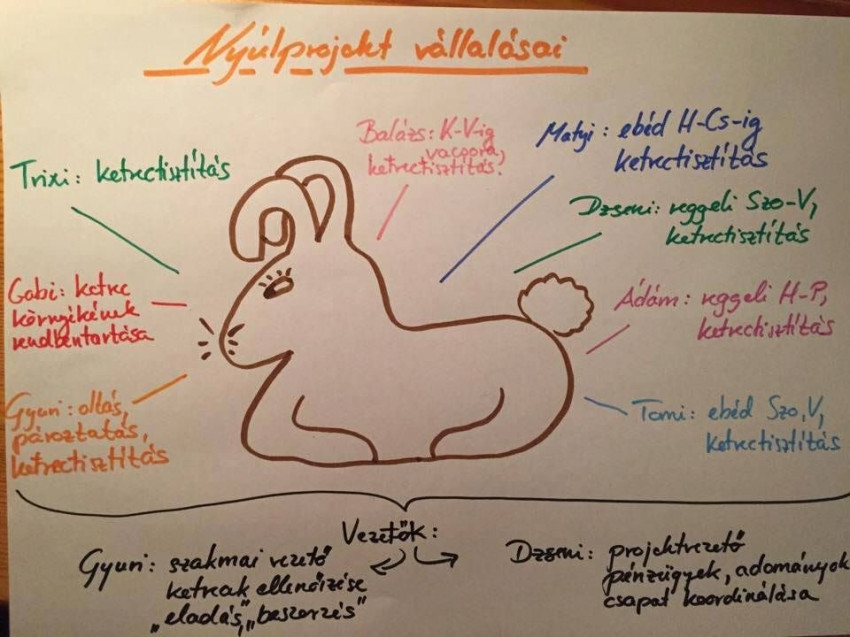 Nyúlprojekt vállalásai
Trixi: ketrectisztítás
Balázs: K-V-ig
vacsora,
ketrectisztítás.
Matyi: ebéd H-Cs-ig
ketrectisztítás
Dzseni: reggeli Szo-V,
ketrectisztítás
Gabi: ketrec
környékének
rendbentartása
Ádám: reggeli H-P,
ketrectisztítás
Gyuri: oltás,
pároztatás,
ketrectisztítás
Tomi: ebéd Szo, V,
ketrectisztítás
Vezetők:
Gyuri: szakmai vezető
ketrecek ellenőrzése
"eladás", "beszerzés"
Dzseni: projektvezető
pénzügyek, adományok
csapat koordinálása